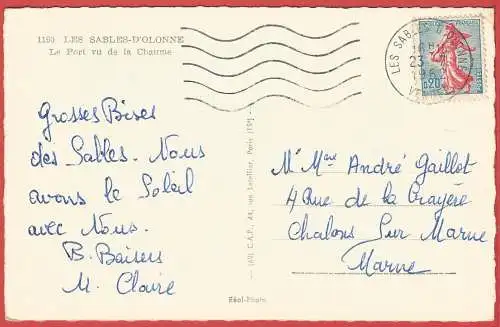 1150 LES SABLES-D'OLONNE
Le Port vu de la Chaume
Grosses Bises
des Sables. Nous
avons le Soleil
avec Nous.
B. Baisers
M. Claire
LES SABLES D'OLONNE
23
196
0,20
(M) C.A.P., 44, rue Letellier, Paris (15e)
Mr Mme André Gaillot
4 Rue de la Crayère
Chalons Sur Marne
Marne
Réel-Photo